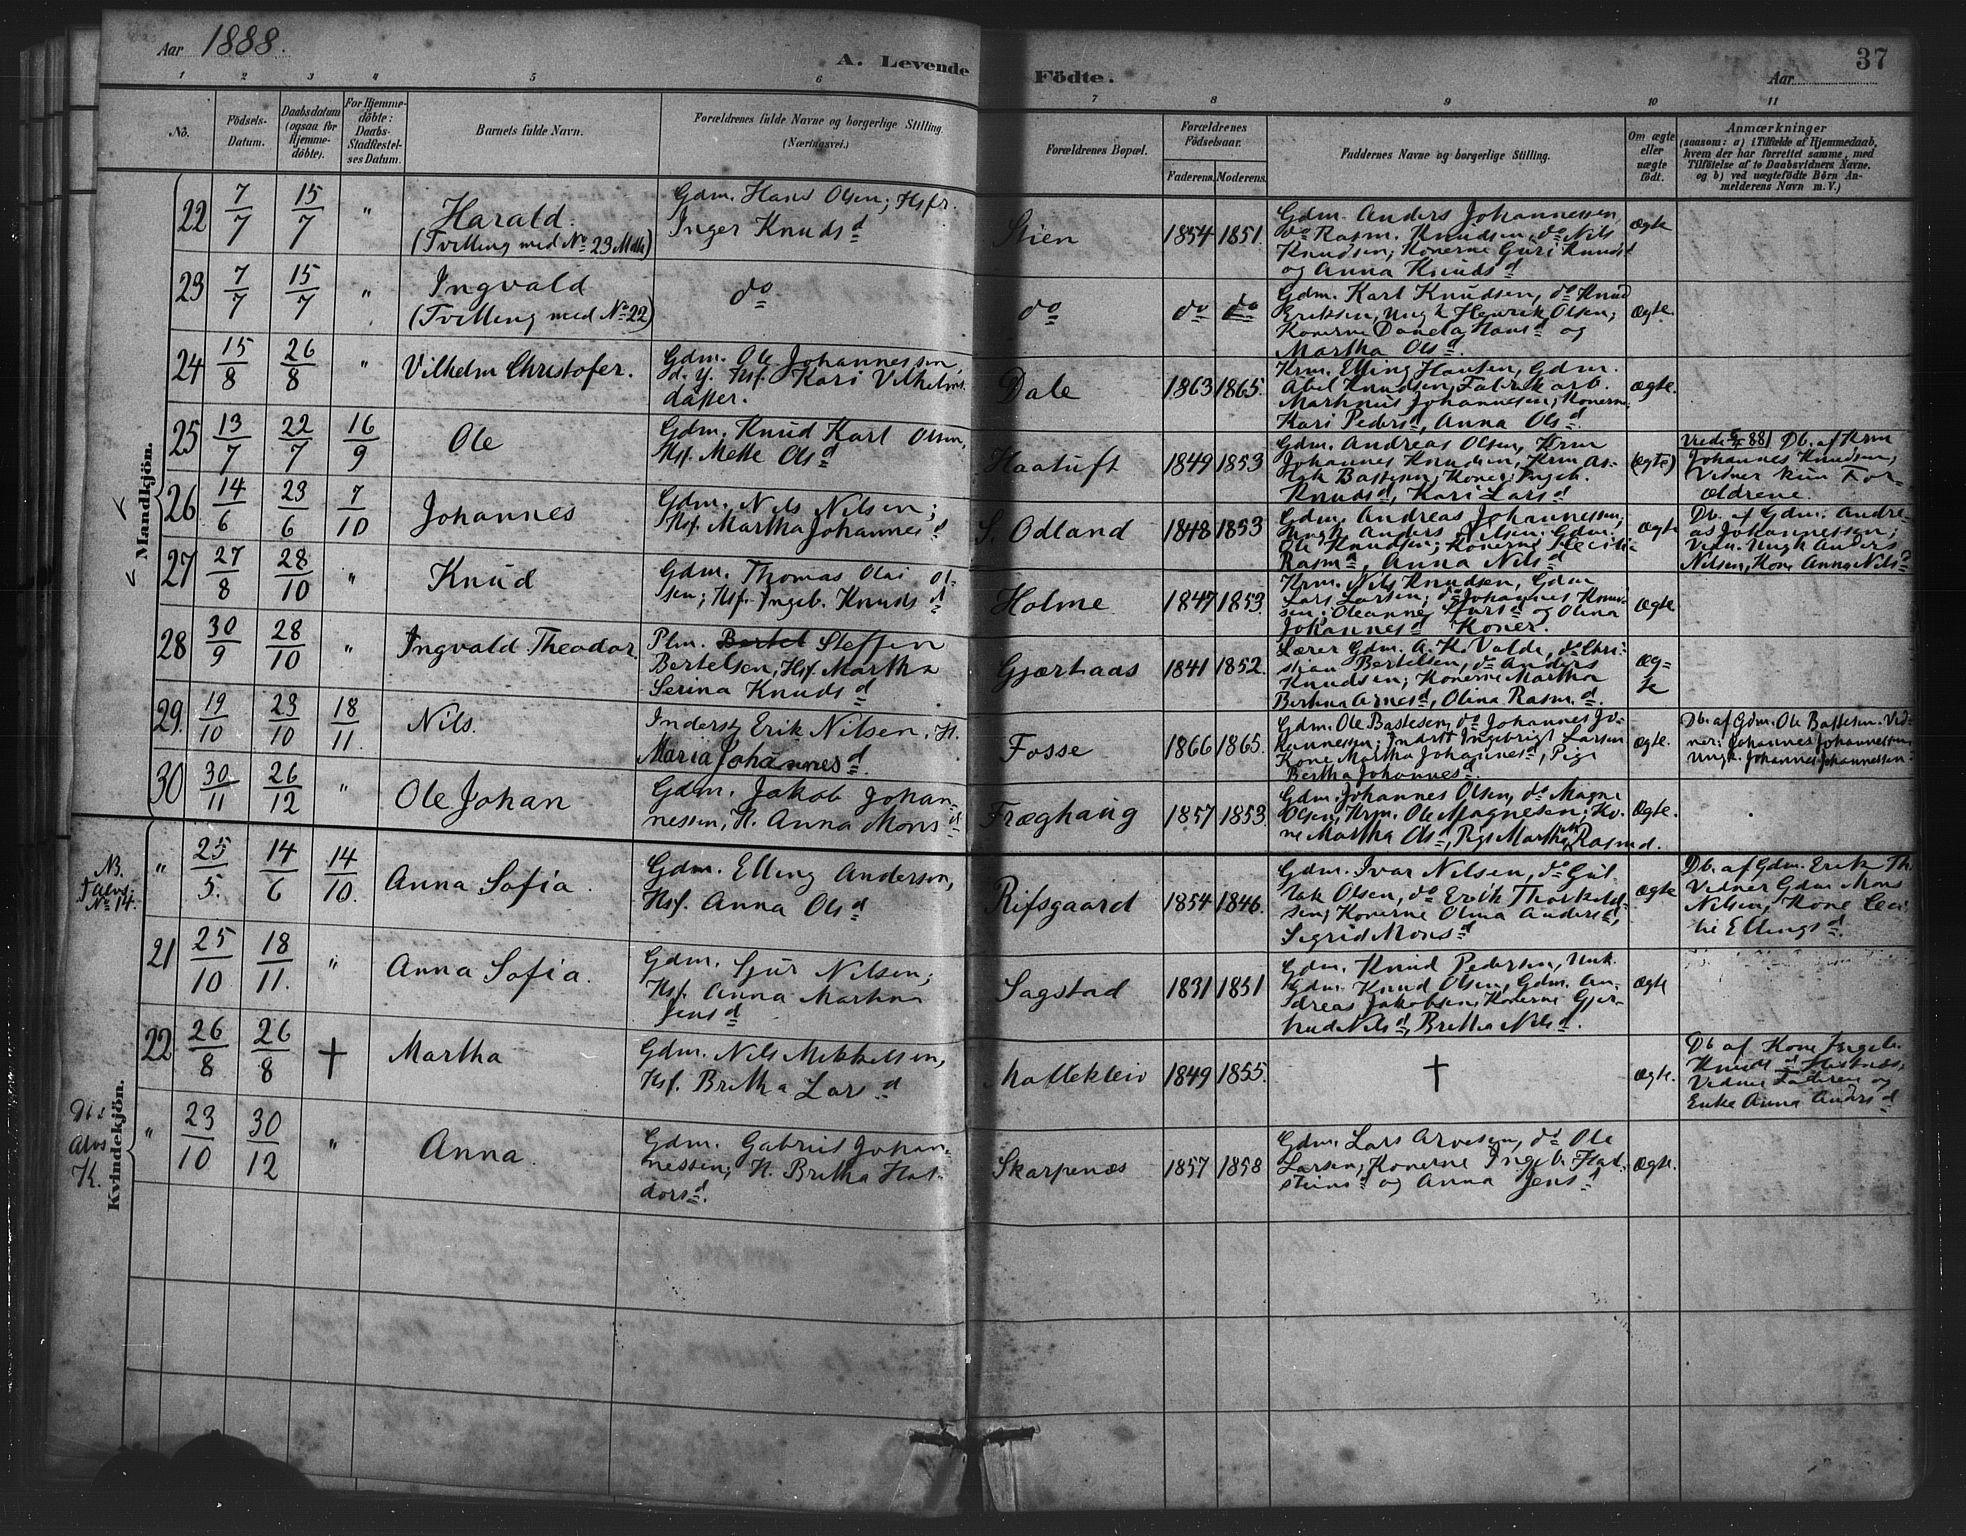 Aar 1888.
A. Levende Födte.
37
Aar
1 2 3 4 5 6 7 8 9 10 11
No.
Födsels-Datum.
Daabsdatum (ogsaa for Hjemme-döbte).
For Hjemme-döbte: Daabs-Stadfæstel-ses Datum.
Barnets fulde Navn.
Forældrenes fulde Navne og borgerlige Stilling
(Næringsvei.)
Forældrenes Bopæl.
Forældrenes Födselsaar.
Faderens. Moderens.
Faddernes Navne og borgerlige Stilling.
Om ægte eller uægte födt.
Anmærkninger
(saasom: a) i Tilfælde af Hjemmedaab,
hvem der har forrettet samme, med
Tilföielse af to Daabsvidners Navne,
og b) ved uægtefödte Börn An-
melderens Navn m. V.)
Mandkjön.
22 7/7 15/7 "
Harald.
(Tvilling med No 23 Mdk)
Gdm. Hans Olsen; Hsfr.
Inger Knudsd
Stien 1854 1851.
Gdm. Anders Johannessen,
do Rasm. Knudsen, do Nils
Knudsen; Konerne Guri Knudsd
og Anna Knudsd
ægte
23 7/7 15/7 "
Ingvald
(Tvilling med No 22)
do
do do do
Gdm. Karl Knudsen, do Knud
Eriksen, Ungk Henrik Olsen;
Konerne Hansd og
Martha Olsd.
Ægte.
24 15/8 26/8 "
Vilhelm Christofer.
Gdm. Ole Johannessen,
d. y. Hsf. Kari Vilhelms-
datter.
Dale 1863 1865.
Krm. Elling Hansen, Gdm.
Abel Knudsen, Fabrikarb.
Johannesen; Konerne
Kari Pedersd, Anna Olsd
ægte.
25 13/7 22/7 16/9
Ole
Gdm. Knud Karl Olsen,
Hsf. Mette Olsd
Haatuft 1849 1853
Gdm. Andreas Olsen, Krm
Johannes Knudsen, Krm As-
lak Bastesen; Koner: Ingeb.
Knudsd, Kari Larsd
(ægte)
Db. af Krm
Johannes Knudsen;
Vidner kun For-
ældrene.
26 14/6 23/6 7/10
Johannes
Gdm. Nils Nilsen;
Hsf. Martha Johannesd
S. Odland 1848 1853
Gdm. Andreas Johannessen;
Ungk Anders Nilsen; Gdm.
Ole Knudsen; Konerne
Rasmd, Anna Nilsd
ægte
Db. af Gdm. Andre-
as Johannessen;
Vidn. Ungk Anders
Nilsen, Kone Anna Nilsd
27 27/8 28/10 "
Knud
Gdm. Thomas Olai Ol-
sen; Hsf. Ingeb. Knudsd
Holme 1847 1853
Krm. Nils Knudsen, Gdm
Lars Larsen, do Johannes Knud-
sen; Oleanne Larsd og Olina
Johannesd Koner.
Ægte
28 30/9 28/10 "
Ingvald Theodor.
Plm. Bertel Steffen
Bertelsen, Hsf. Martha
Serina Knudsd
Gjærhaas 1841 1852.
Lærer Gdm. A. K. Valde, do Chri-
stian Bertelsen, do Anders
Knudsen; Konerne Martha
Bertina Arnesd, Olina Rasm.d
Æg-
te
29. 19/10 23/10 18/11.
Nils.
Inderst Erik Nilsen, H.
Maria Johannesd.
Fosse 1866 1865.
Gdm. Ole Bastesen, do Johannes Jo-
hannesen; Inderst Ingebrigt Larsen
Kone Martha Johannesd, Pige
Bertha Johannesd
ægte.
Db. af Gdm. Ole Bastesen. Vid-
ner: Johannes Johannessen
Ungk. Johannes Johannessen.
30 30/11 26/12 "
Ole Johan
Gdm. Jakob Johan-
nessen, H. Anna Monsd
Fræghaug 1857 1853.
Gdm. Johannes Olsen, do Magne
Olsen, Krm. Ole Magnesen; Ko-
ne Martha Olsd, Pige Martha Rasmd.
Ægte.
Kvindekjön.
NB.
No 14.
" 25/5. 14/6 14/10.
Anna Sofia.
Gdm. Elling Anderson,
Hsf. Anna Olsd
Rifsgaard 1854 1846.
Gdm. Ivar Nilsen, do Gut-
tak Olsen, do Erik Thorkild-
sen; Konerne Olina Andersd,
Sigrid Monsd
ægte
Db. af Gdm. Erik Th.
Vidner Gdm Mons
Nilsen, Kone Ceci-
lie Ellingsd.
21 25/10 18/11. "
Anna Sofia.
Gdm. Sjur Nilsen;
Hsf. Anna Martina
Jensd
Sagstad 1831 1851
Gdm. Knud Pedersen,
Gdm. Knud Olsen, Gdm. An-
dreas Jakobsen; Konerne Gjer-
trud Nilsd, Britha Nilsd.
Ægte
22 26/8 26/8 †
Martha
Gdm. Nils Mikkelsen,
Hsf. Britha Larsd
Mollekleiv 1849 1855.
†
Ægte.
Db af Kone Ingeb.
Knudsd
Vidner Faderen og
Enke Anna Andersd
Alvs
K.
" 23/10 30/12 "
Anna.
Gdm. Gabriel Johan-
nessen; H. Britha Hal-
dorsd.
Skarpenæs 1857 1858
Gdm. Lars Arvesen, do Ole
Larsen; Konerne Ingeb. Hal-
steinsd og Anna Jensd
Ægte.